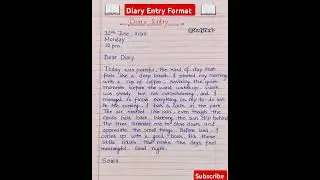 Diary Entry Format
Diary Entry
@StudyPark
10th June, 20
Monday
10 pm
Dear Diary
Today was peaceful, the kind of day that
feels like a deep breath. I started my morning
with a cup of coffee, savoring the quiet
moments before the world wakeup. Work
was steady but not overwhelming, and I
managed to finish everything on my to do list
In the evening I took a walk in the park.
The air smelled like rain, even though the
clouds held back. Watching the sun dip behind
the trees reminded me to slow down and
appreciate the small things. Before bed, I
curled up with a good book. It's these
little rituals that make the days
feel meaningful. Good night.
Subscribe